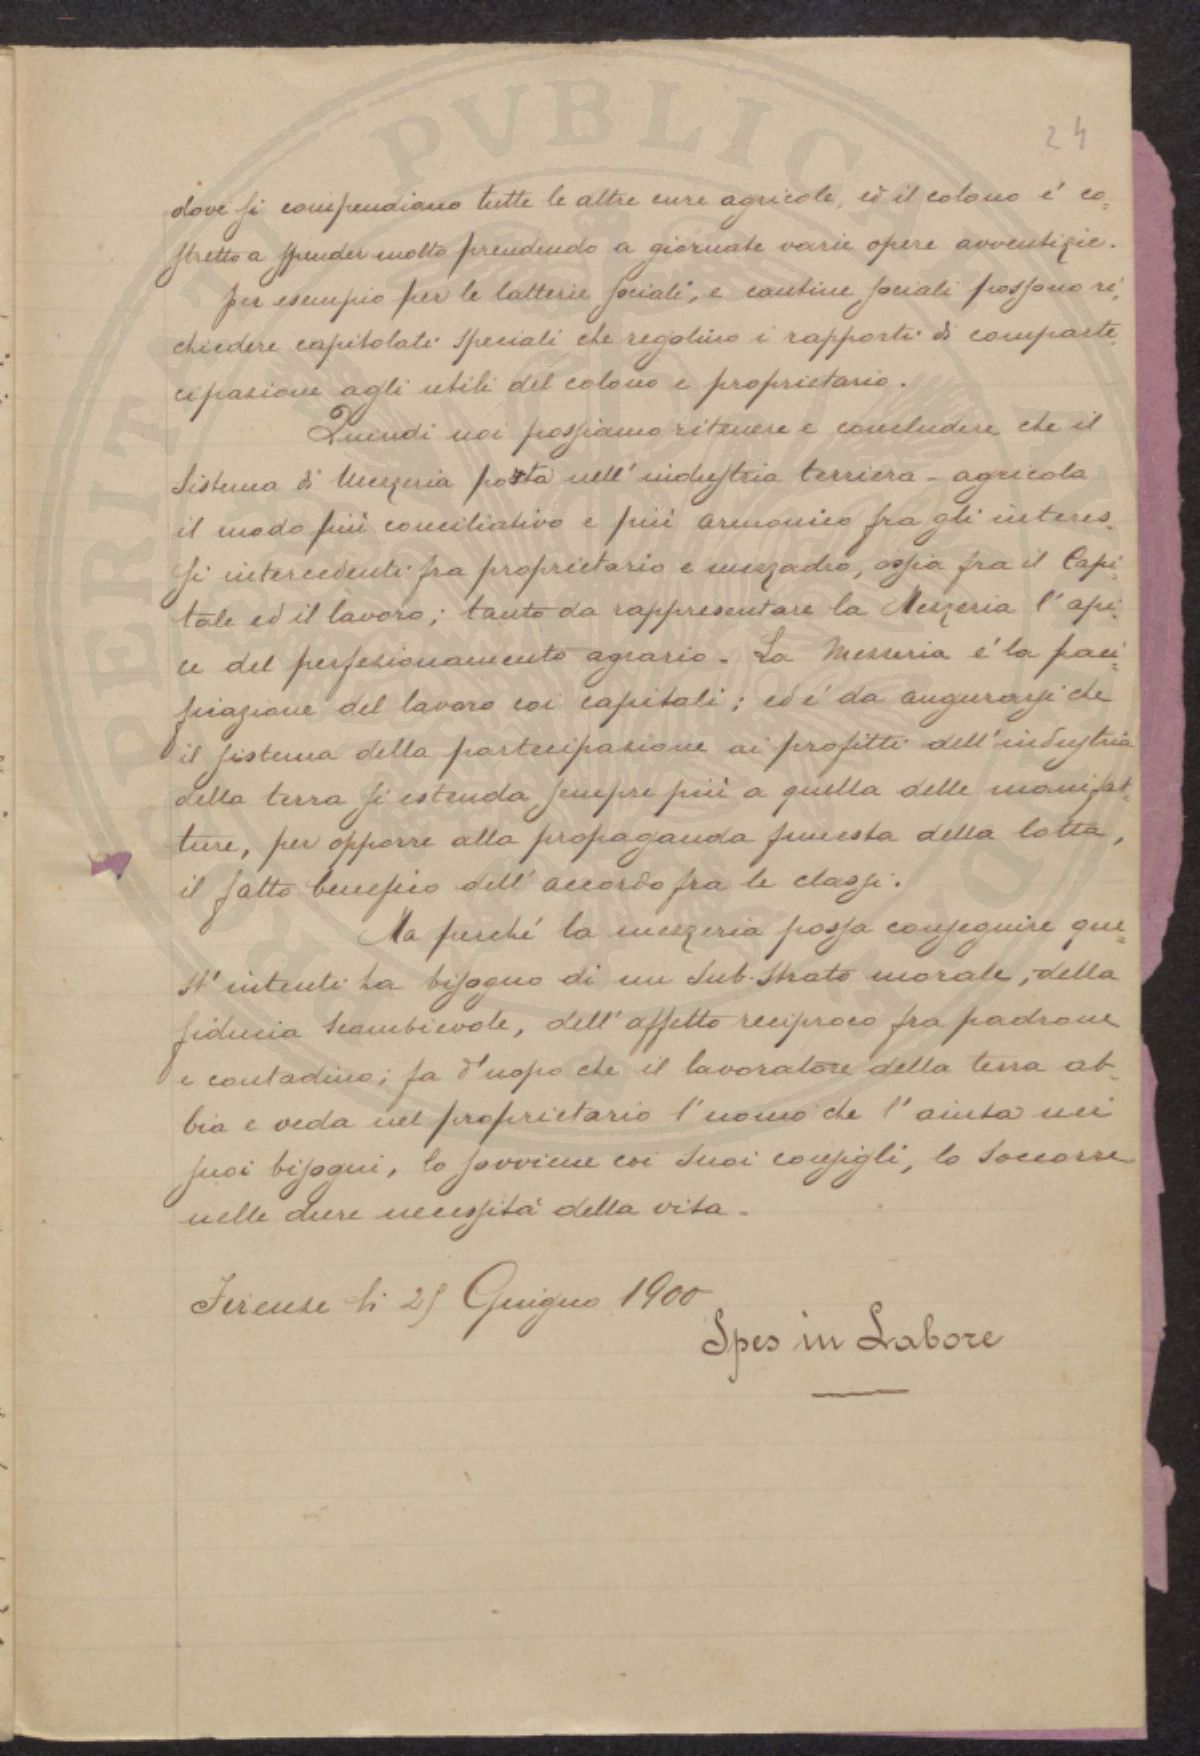 24
dove si compendiano tutte le altre cure agricole, ed il colono é co=
stretto a spender molto prendendo a giornate varie opere avventizie.
Per esempio per le latterie sociali, e cantine sociali possono ri=
chiedere capitolati speciali che regolino i rapporti di comparte=
cipazione agli utili del colono e proprietario.
Quindi noi possiamo ritenere e concludere che il
Sistema di Mezzeria porta nell' industria terriera - agricola
il modo più conciliativo e più armonico fra gli interes=
si intercedenti fra proprietario e mezzadro, ossia fra il Capi=
tale ed il lavoro; tanto da rappresentare la Mezzeria l' api=
ce del perfezionamento agrario. La Mezzeria é la paci=
ficazione del lavoro coi capitali; ed é da augurarsi che
il sistema della partecipazione ai profitti dell' industria
della terra si estenda sempre più a quella delle manifat=
ture, per opporre alla propaganda funesta della lotta,
il fatto benefico dell' accordo fra le classi.
Ma perché la mezzeria possa conseguire que=
st' intenti ha bisogno di un Sub-strato morale, della
fiducia scambievole, dell' affetto reciproco fra padrone
e contadino; fa d' uopo che il lavoratore della terra ab=
bia e veda nel proprietario l' uomo che l' aiuta nei
suoi bisogni, lo sovviene coi suoi consigli, lo soccorre
nelle dure necessità della vita.
Firenze li 25 Giugno 1900
Spes in Labore
PVBLICAE